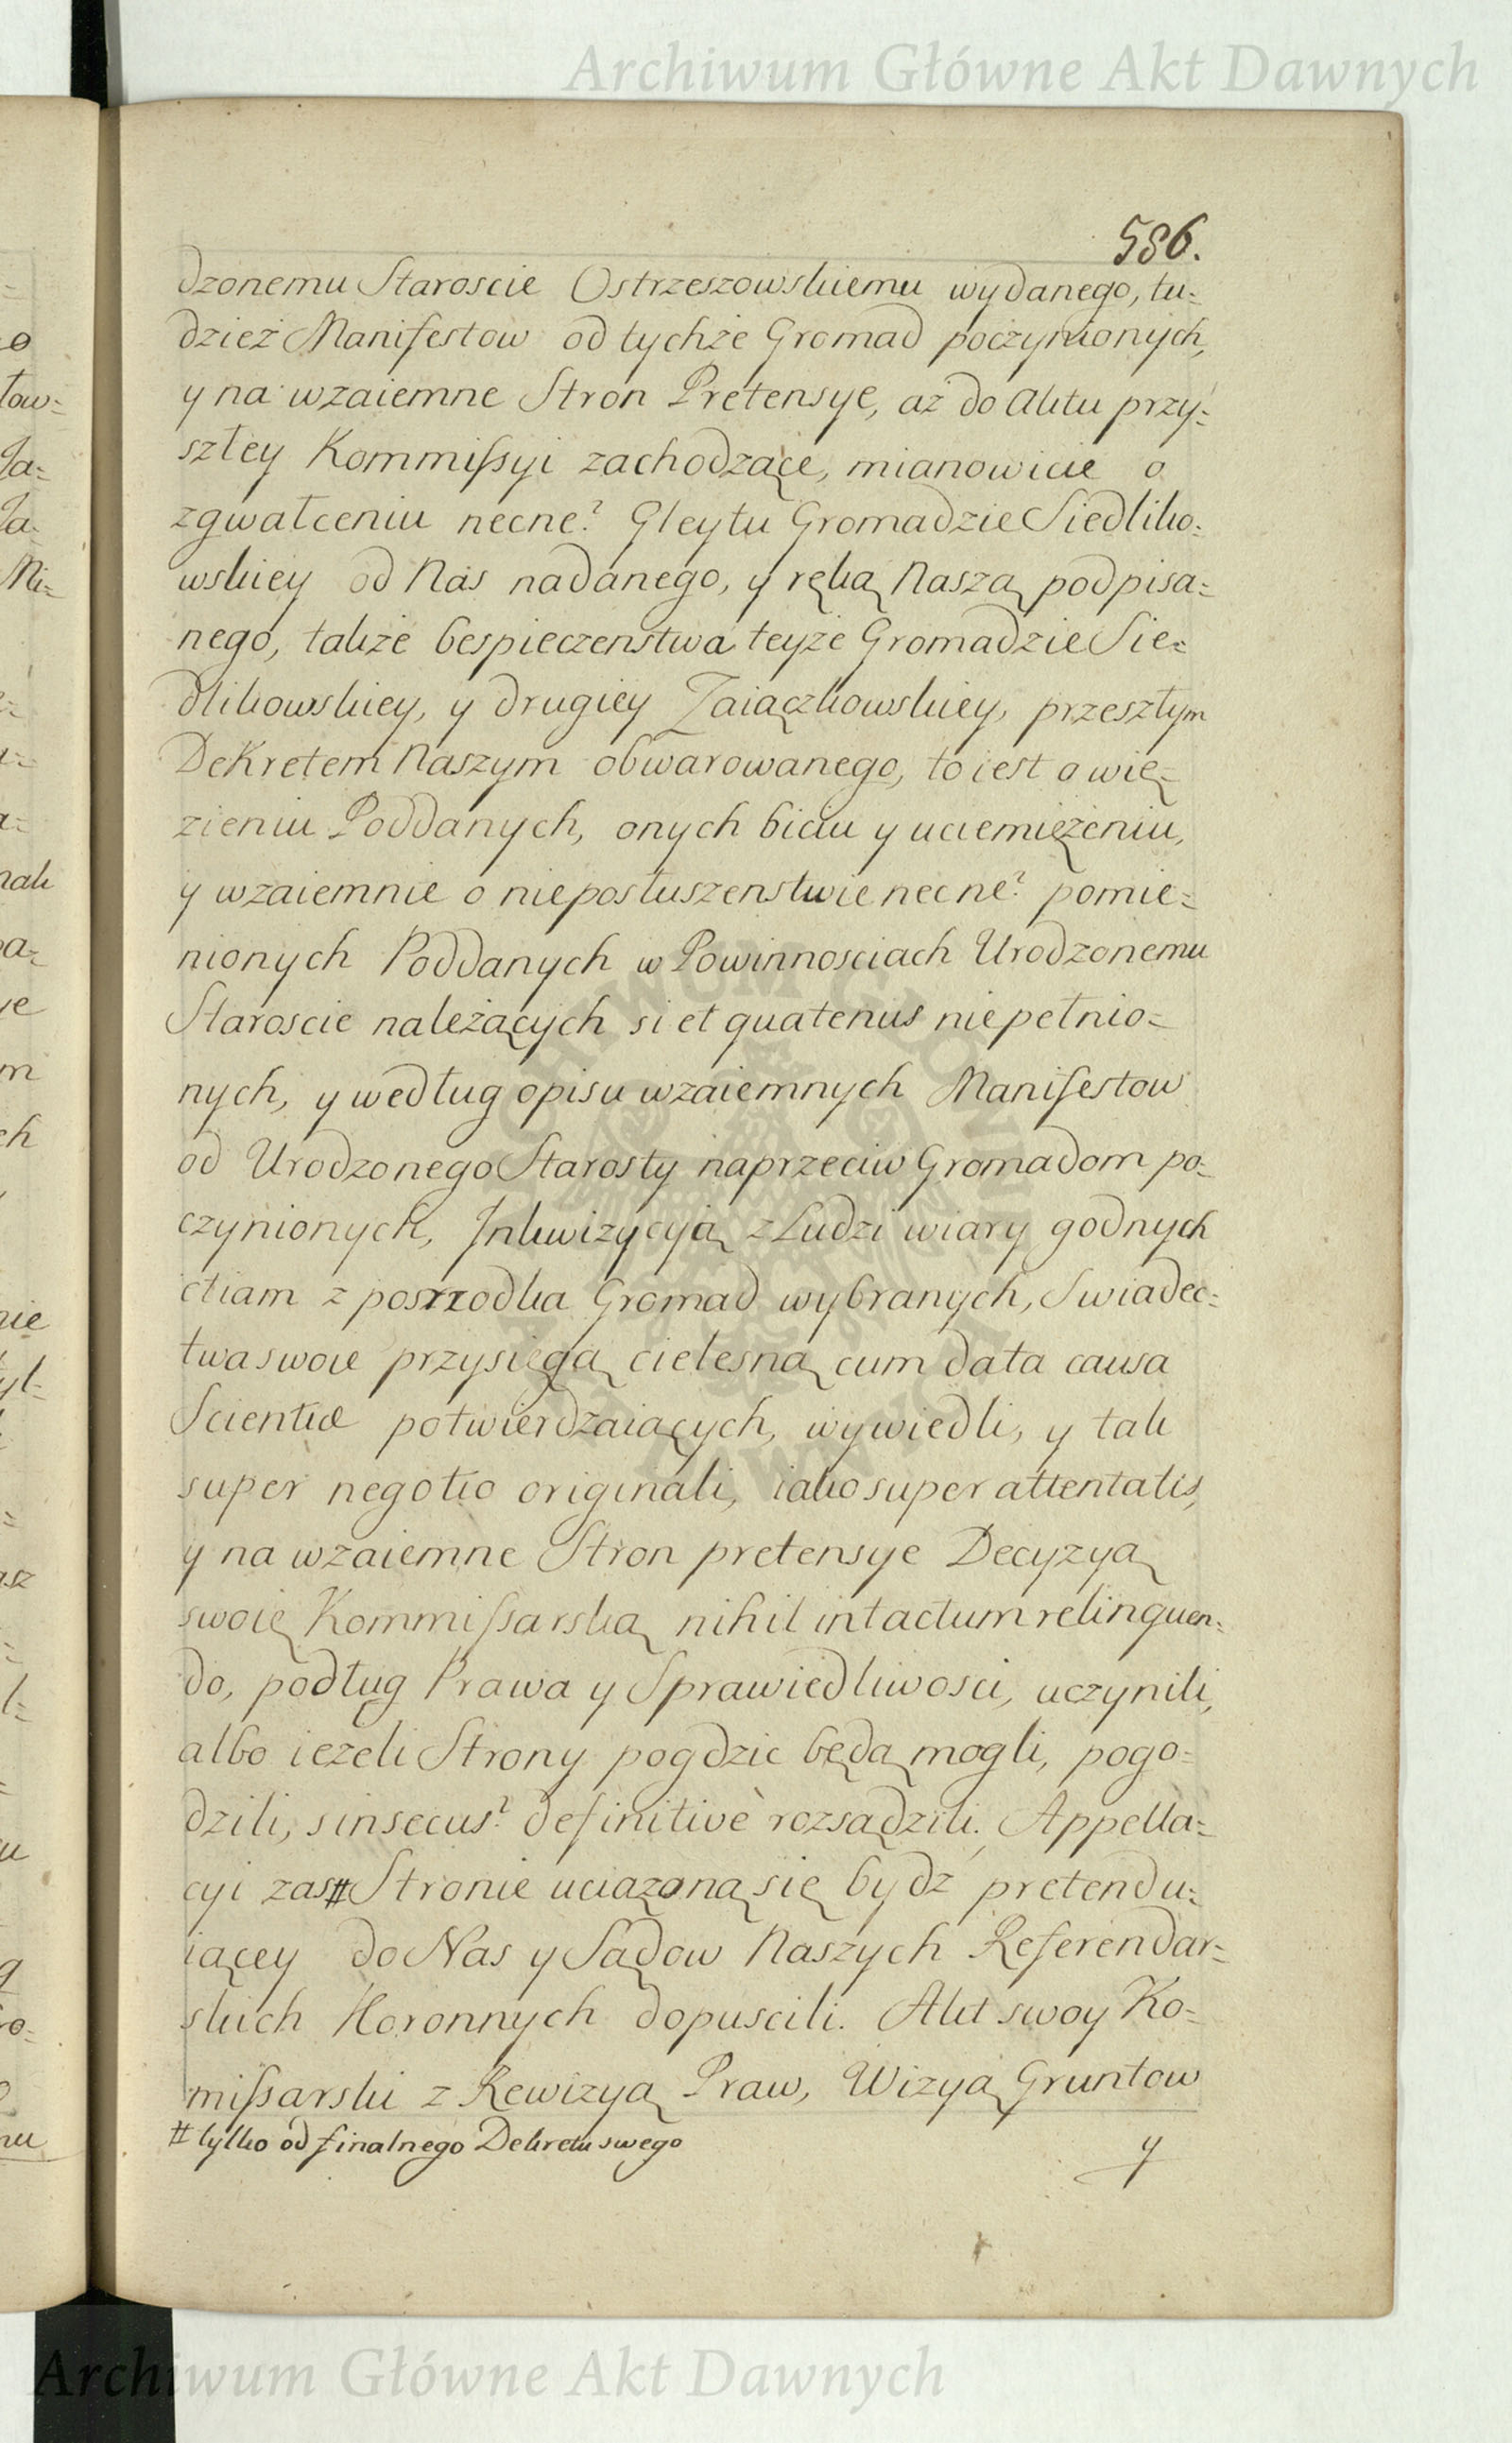 Archiwum Główne Akt Dawnych
586.
dzonemu Staroscie Ostrzeszowskiemu wydanego, tu=
dzież Manifestow od tychże Gromad poczynionych,
y na wzaiemne Stron Pretensye, aż do Aktu przy=
szłey Kommissyi zachodzące, mianowicie o
zgwałceniu necne? Gleytu Gromadzie Siedliko=
wskiey od Nas nadanego, y ręką Naszą podpisa=
nego, także bespieczenstwa teyże Gromadzie Sie=
dlikowskiey, y drugiey Zaiączkowskiey, przeszłym
DeKretem Naszym obwarowanego, to iest o wię=
zieniu Poddanych, onych biciu y uciemiężeniu,
y wzaiemnie o nieposłuszenstwie necne? pomie=
nionych Poddanych w Powinnosciach Urodzonemu
Staroscie należących si et quatenus niepełnio=
nych, y według opisu wzaiemnych Manifestow
od Urodzonego Starosty naprzeciw Gromadom po=
czynionych, Inkwizycyią z Ludzi wiary godnych
etiam z poszrodka Gromad wybranych, Swiadec=
twa swoie przysięgą cielesną cum data causa
Scientiæ potwierdzaiących, wywiedli, y tak
super negotio originali, iako super attentatis,
y na wzaiemne Stron pretensye Decyzyą
swoię Kommissarską nihil intactum relinquen=
do, podług Prawa y Sprawiedliwosci, uczynili,
albo ieżeli Strony pogdzic będą mogli, pogo=
dzili, sinsecus? definitivè rozsądzili. Appella=
cyi zas # Stronie uciążoną się bydź pretendu=
iącey do Nas y Sądow Naszych Referendar=
skich Koronnych dopuscili. Akt swoy Ko=
missarski z Rewizyą Praw, Wizyą Gruntow
# tylko od finalnego Dekretu swego
y
Archiwum Główne Akt Dawnych